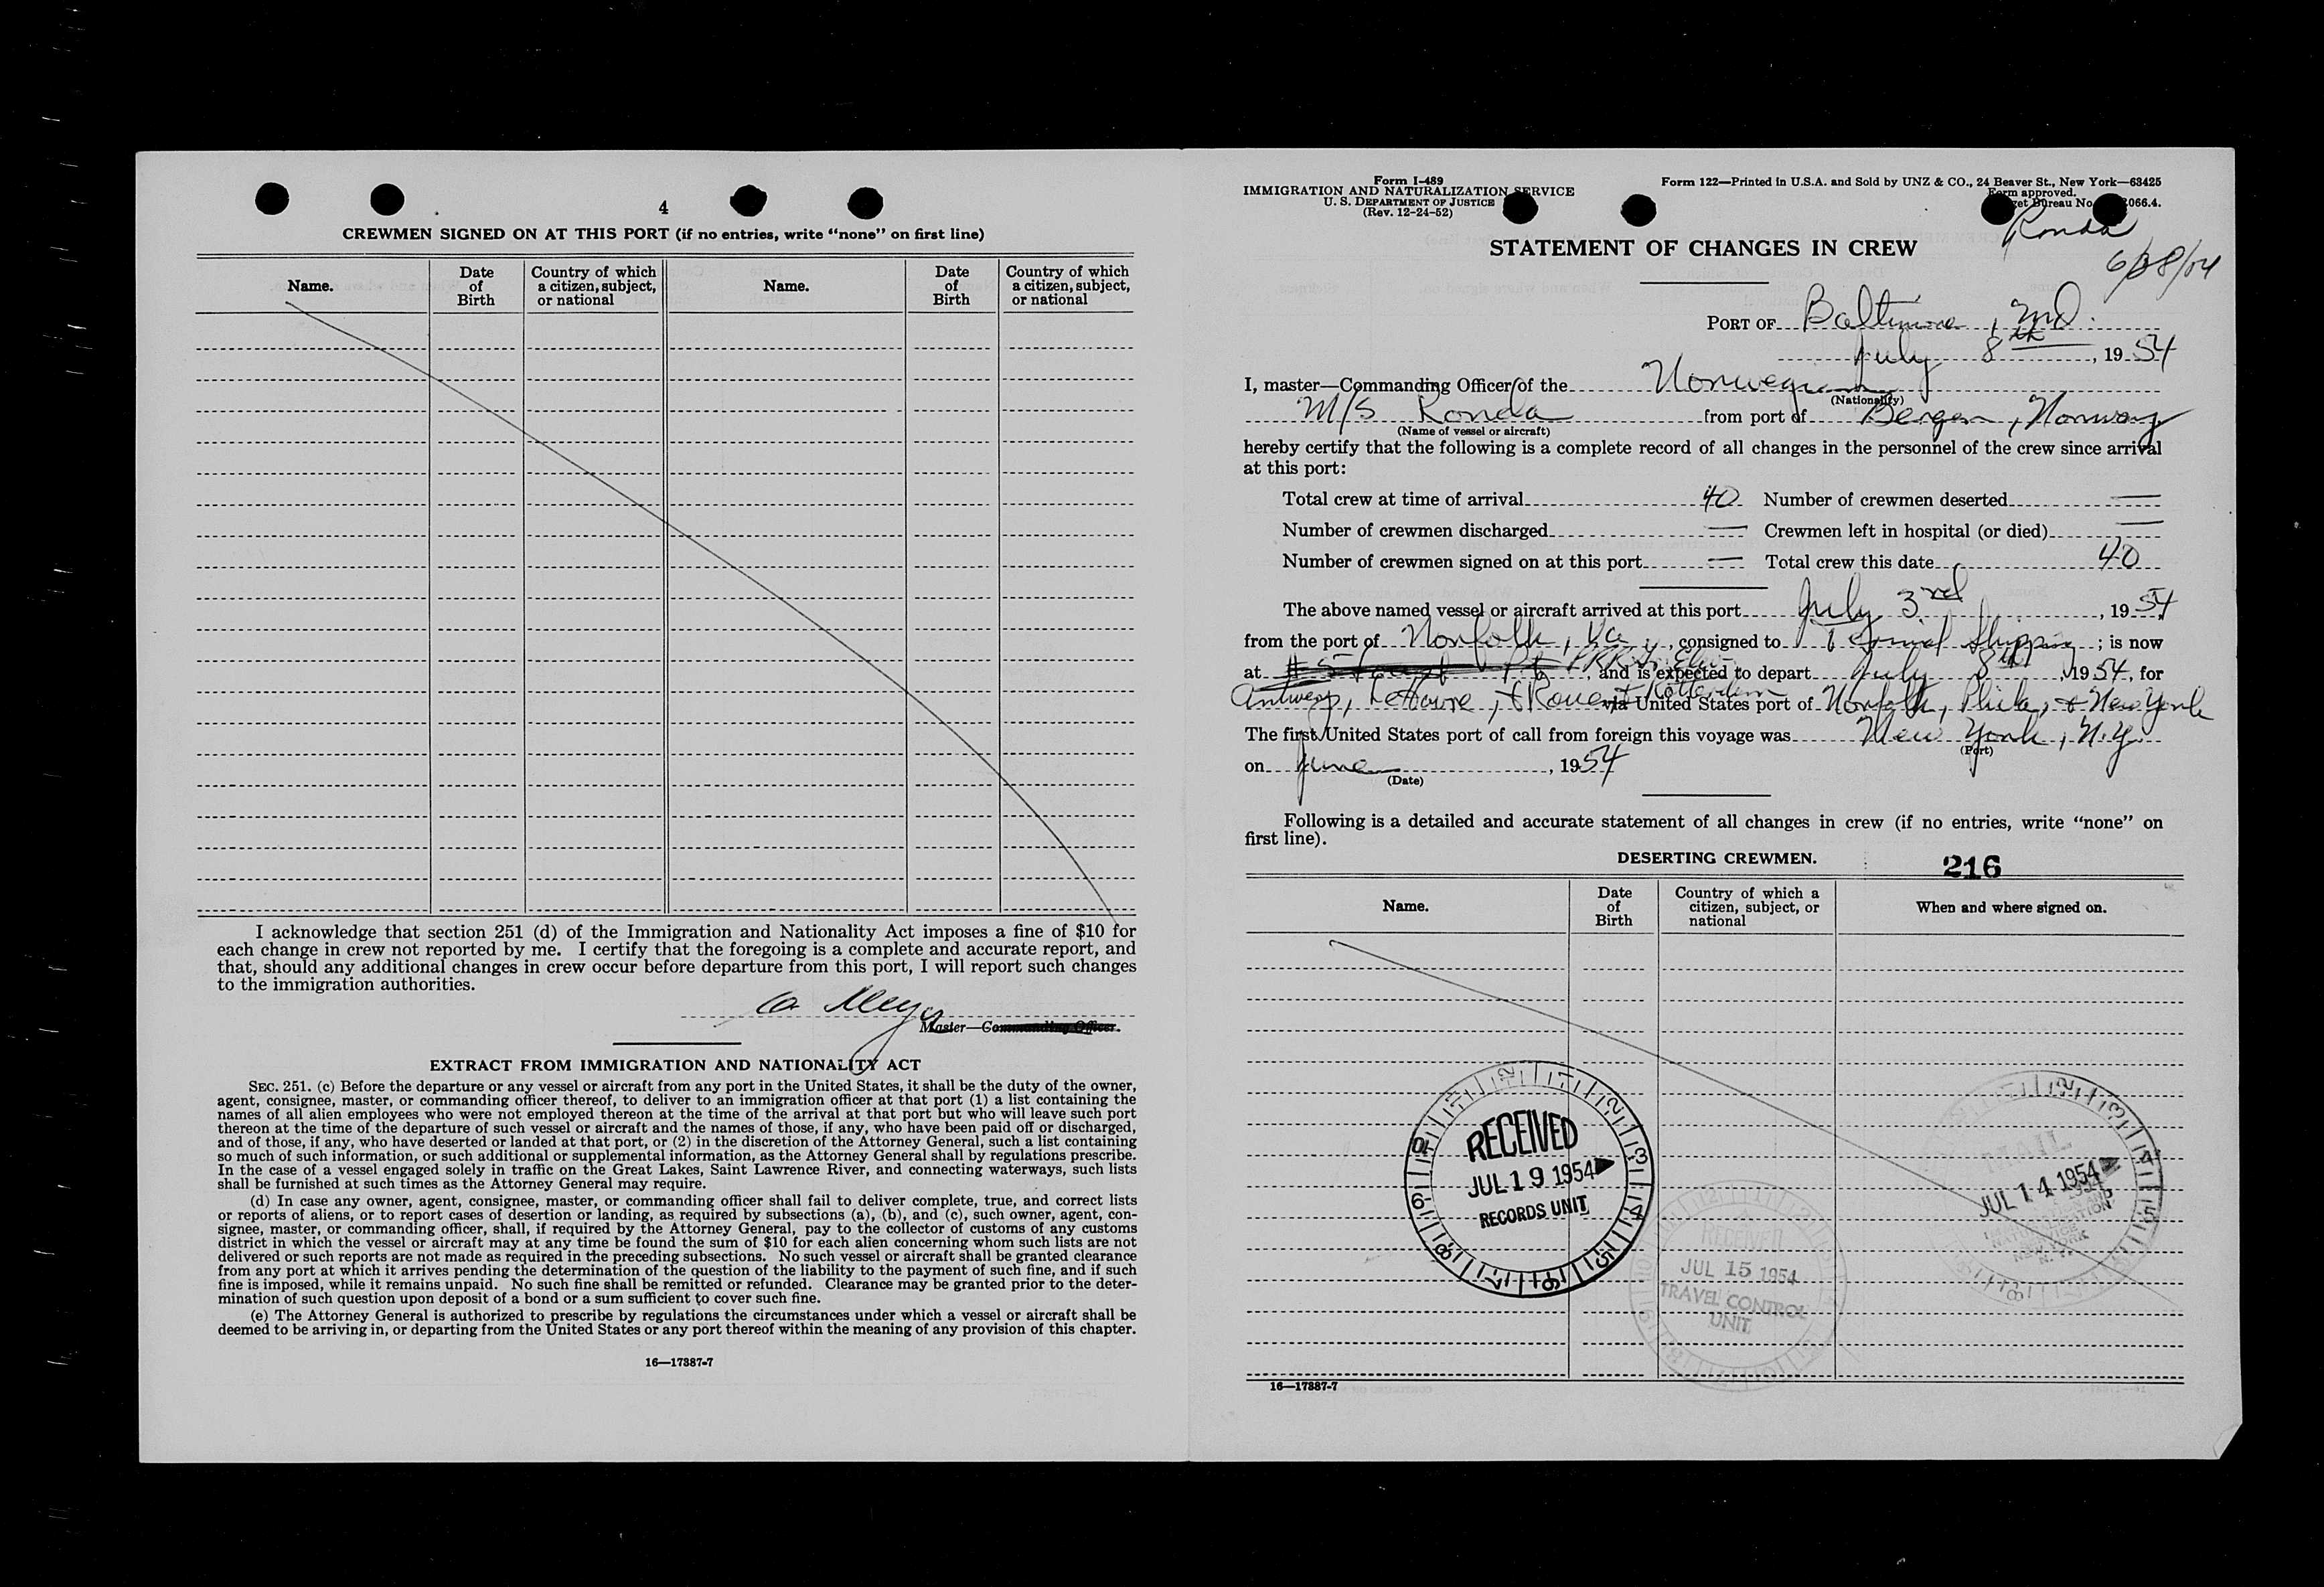 4
CREWMEN SIGNED ON AT THIS PORT (if no entries, write “none” on first line)
Name. Date of Birth Country of which a citizen, subject, or national Name. Date of Birth Country of which a citizen, subject, or national
I acknowledge that section 251 (d) of the Immigration and Nationality Act imposes a fine of $10 for
each change in crew not reported by me. I certify that the foregoing is a complete and accurate report, and
that, should any additional changes in crew occur before departure from this port, I will report such changes
to the immigration authorities.
Master—Commanding Officer.
EXTRACT FROM IMMIGRATION AND NATIONALITY ACT
SEC. 251. (c) Before the departure or any vessel or aircraft from any port in the United States, it shall be the duty of the owner,
agent, consignee, master, or commanding officer thereof, to deliver to an immigration officer at that port (1) a list containing the
names of all alien employees who were not employed thereon at the time of the arrival at that port but who will leave such port
thereon at the time of the departure of such vessel or aircraft and the names of those, if any, who have been paid off or discharged,
and of those, if any, who have deserted or landed at that port, or (2) in the discretion of the Attorney General, such a list containing
so much of such information, or such additional or supplemental information, as the Attorney General shall by regulations prescribe.
In the case of a vessel engaged solely in traffic on the Great Lakes, Saint Lawrence River, and connecting waterways, such lists
shall be furnished at such times as the Attorney General may require.
(d) In case any owner, agent, consignee, master, or commanding officer shall fail to deliver complete, true, and correct lists
or reports of aliens, or to report cases of desertion or landing, as required by subsections (a), (b), and (c), such owner, agent, con-
signee, master, or commanding officer, shall, if required by the Attorney General, pay to the collector of customs of any customs
district in which the vessel or aircraft may at any time be found the sum of $10 for each alien concerning whom such lists are not
delivered or such reports are not made as required in the preceding subsections. No such vessel or aircraft shall be granted clearance
from any port at which it arrives pending the determination of the question of the liability to the payment of such fine, and if such
fine is imposed, while it remains unpaid. No such fine shall be remitted or refunded. Clearance may be granted prior to the deter-
mination of such question upon deposit of a bond or a sum sufficient to cover such fine.
(e) The Attorney General is authorized to prescribe by regulations the circumstances under which a vessel or aircraft shall be
deemed to be arriving in, or departing from the United States or any port thereof within the meaning of any provision of this chapter.
16—17887-7
Form I-489
IMMIGRATION AND NATURALIZATION SERVICE
U. S. DEPARTMENT OF JUSTICE
(Rev. 12-24-52)
Form 122—Printed in U.S.A. and Sold by UNZ & CO., 24 Beaver St., New York—63425
Form approved.
Bureau No. 066.4.
Ronda
STATEMENT OF CHANGES IN CREW
PORT OF Baltimore, Md.
July 8th, 1954
I, master—Commanding Officer of the Norwegian
(Nationality)
M/S Ronda from port of Bergen, Norway
(Name of vessel or aircraft)
hereby certify that the following is a complete record of all changes in the personnel of the crew since arrival
at this port:
Total crew at time of arrival 40 Number of crewmen deserted —
Number of crewmen discharged — Crewmen left in hospital (or died) —
Number of crewmen signed on at this port — Total crew this date 40
The above named vessel or aircraft arrived at this port July 3rd, 1954
from the port of Norfolk, Va., consigned to Terminal Shipping; is now
at , and is expected to depart July 8th, 1954, for
Antwerp, LeHavre, + Rouen + Rotterdam via United States port of Norfolk, Phila, + New York
The first United States port of call from foreign this voyage was New York, N.Y.
(Port)
on June, 1954
(Date)
Following is a detailed and accurate statement of all changes in crew (if no entries, write “none” on
first line).
DESERTING CREWMEN.
216
Name. Date of Birth Country of which a citizen, subject, or national When and where signed on.
RECEIVED
JUL 19 1954
RECORDS UNIT
MAIL
JUL 14 1954
NEW YORK
N. Y.
RECEIVED
JUL 15 1954
TRAVEL CONTROL
UNIT
16—17887-7